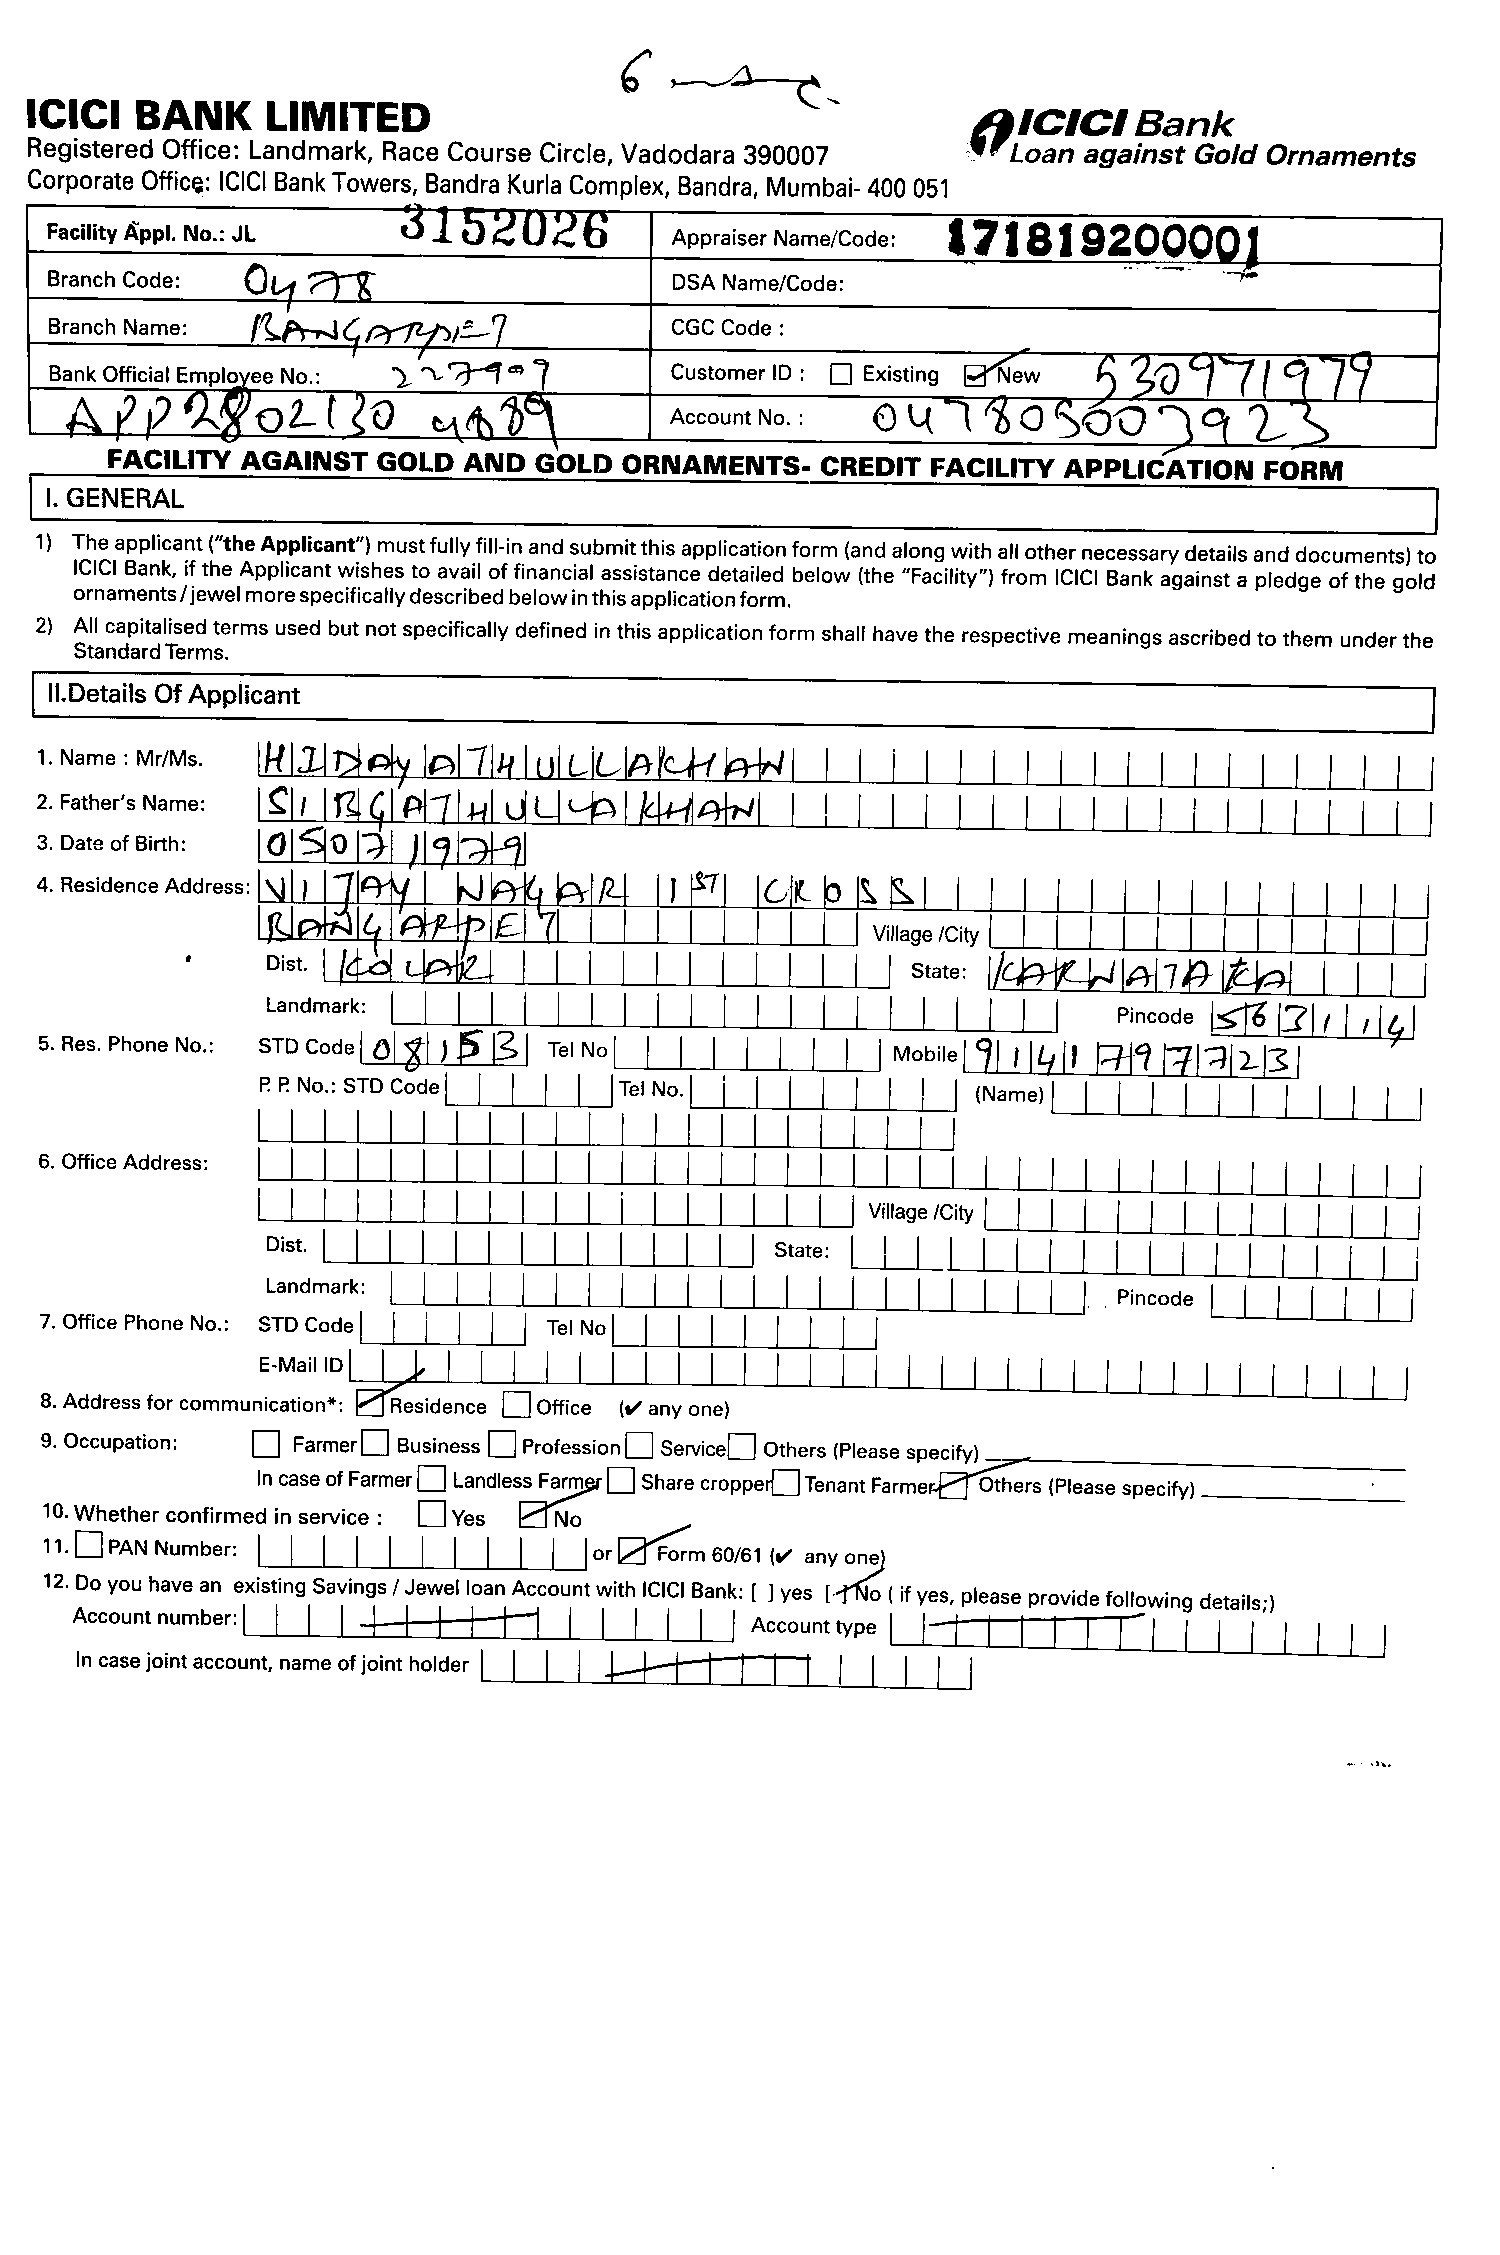 6
ICICI BANK LIMITED
Registered Office: Landmark, Race Course Circle, Vadodara 390007
Corporate Office: ICICI Bank Towers, Bandra Kurla Complex, Bandra, Mumbai- 400 051
ICICI Bank
Loan against Gold Ornaments
Facility Appl. No.: JL 3152026 Appraiser Name/Code: 171819200001
Branch Code: 0478 DSA Name/Code:
Branch Name: BANGARPET CGC Code :
Bank Official Employee No.: Customer ID : Existing New 530971979
APP2802130 4889 Account No. : 047805003923
FACILITY AGAINST GOLD AND GOLD ORNAMENTS- CREDIT FACILITY APPLICATION FORM
I. GENERAL
1) The applicant ("the Applicant") must fully fill-in and submit this application form (and along with all other necessary details and documents) to
ICICI Bank, if the Applicant wishes to avail of financial assistance detailed below (the "Facility") from ICICI Bank against a pledge of the gold
ornaments/jewel more specifically described below in this application form.
2) All capitalised terms used but not specifically defined in this application form shall have the respective meanings ascribed to them under the
Standard Terms.
II.Details Of Applicant
1. Name : Mr/Ms. HIDAYATHULLAKHAN
2. Father's Name: SIBGATHULLAKHAN
3. Date of Birth: 05071979
4. Residence Address: VIJAY NAGAR 1ST CROSS
BANGARPET Village /City
Dist. KOLAR State: KARNATAKA
Landmark: Pincode 563114
5. Res. Phone No.: STD Code 08153 Tel No Mobile 9141797723
P. P. No.: STD Code Tel No. (Name)
6. Office Address:
Village /City
Dist. State:
Landmark: Pincode
7. Office Phone No.: STD Code Tel No
E-Mail ID
8. Address for communication*: Residence Office (✔ any one)
9. Occupation: Farmer Business Profession Service Others (Please specify)
In case of Farmer Landless Farmer Share cropper Tenant Farmer Others (Please specify)
10. Whether confirmed in service : Yes No
11. PAN Number: or Form 60/61 (✔ any one)
12. Do you have an existing Savings / Jewel loan Account with ICICI Bank: [ ] yes [ ] No ( if yes, please provide following details;)
Account number: Account type
In case joint account, name of joint holder